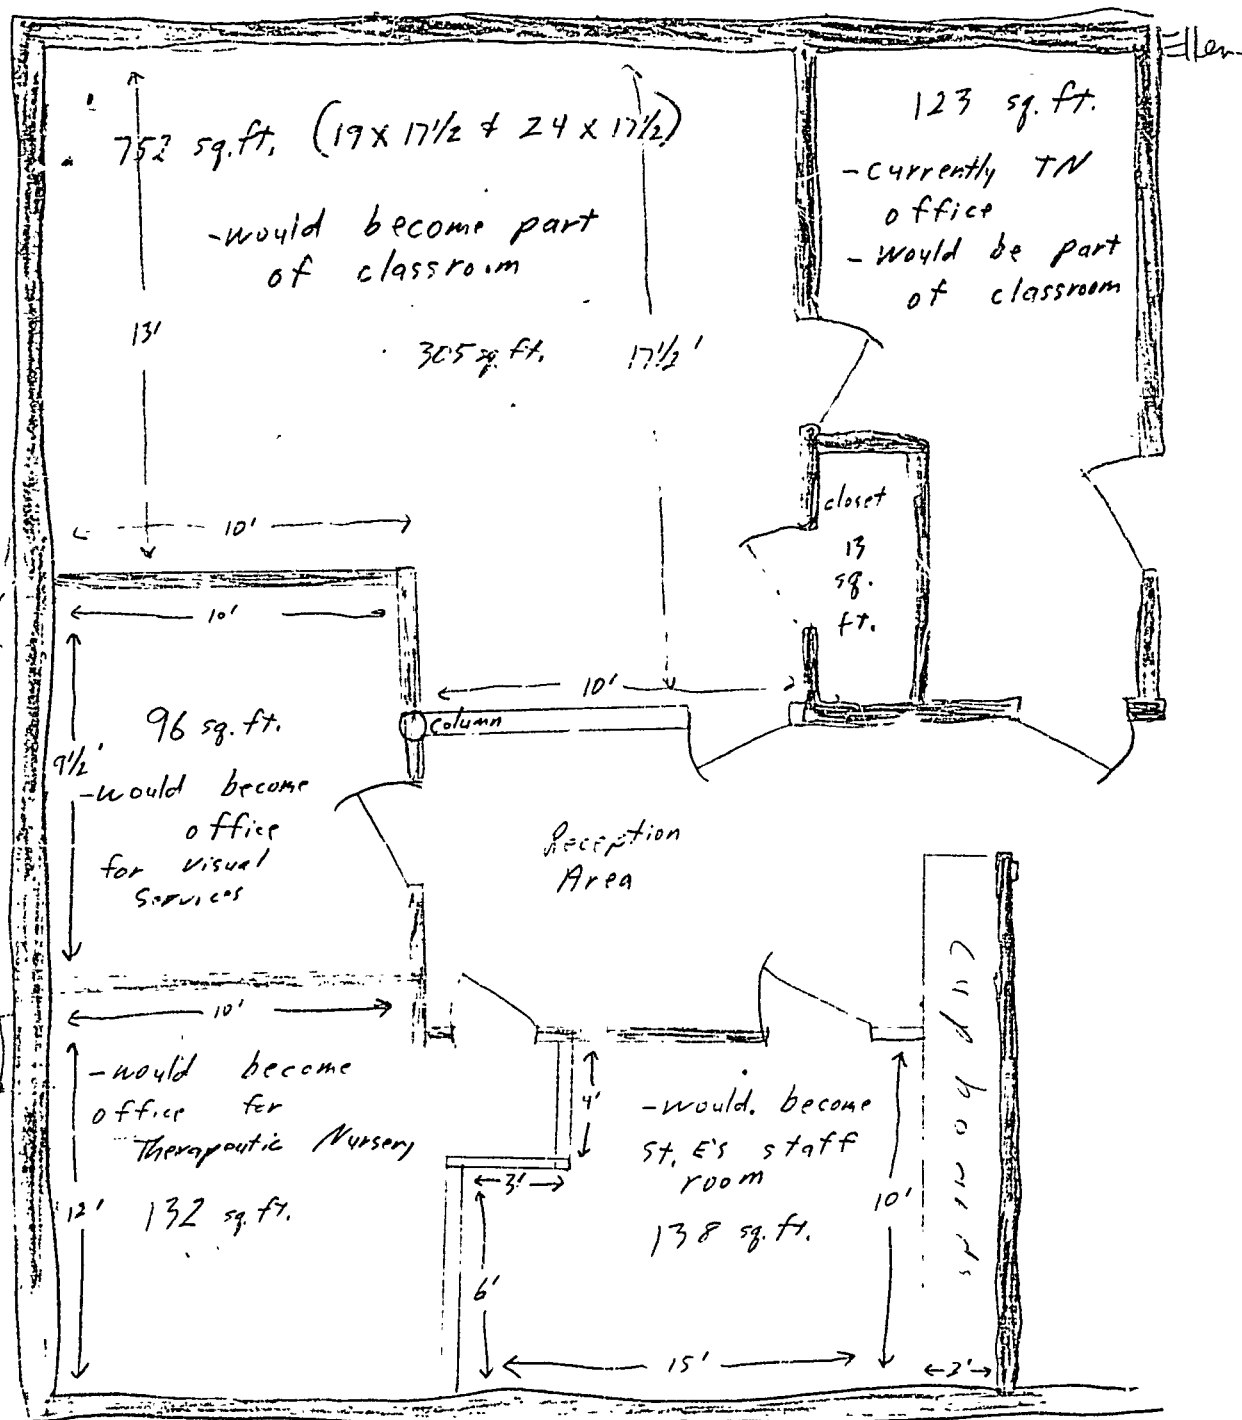 Ellen
752 sq.ft. (19 x 17 1/2 & 24 x 17 1/2)
- would become part
of classroom
13'
305 sq. ft.
17 1/2'
10'
123 sq. ft.
- Currently TN
office
- Would be part
of classroom
closet
13
sq.
ft.
10'
9 1/2'
96 sq. ft.
- would become
office
for Visual
Services
10'
column
Reception
Area
cupboards
10'
- would become
office for
Therapeutic Nursery
12'
132 sq. ft.
4'
3'
6'
- would. become
St. E's staff
room
138 sq. ft.
10'
15'